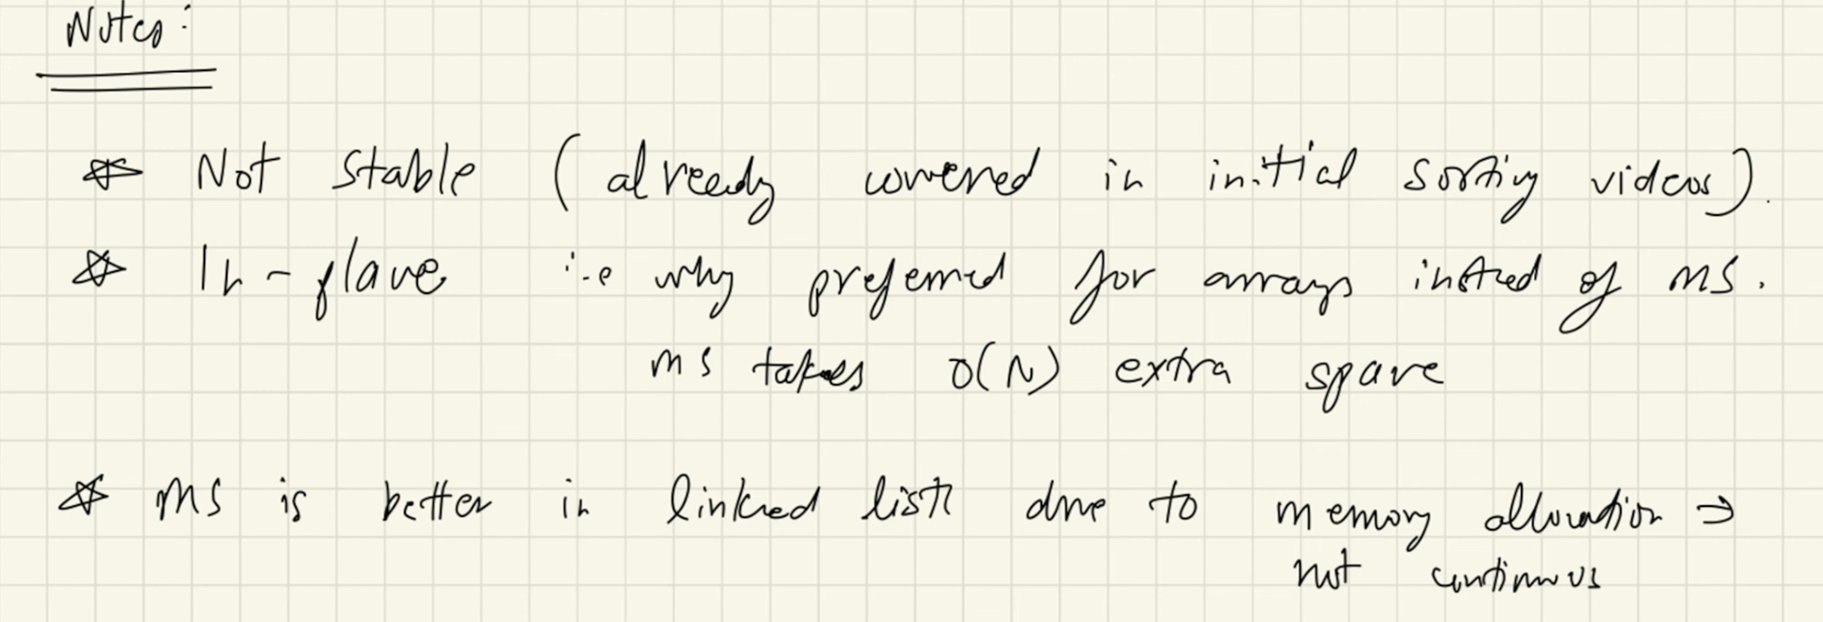 Notes:
* Not stable (already covered in initial sorting videos).
* In-place i.e why preferred for arrays instead of MS.
MS takes O(N) extra space
* MS is better in linked lists due to memory allocation ⇒
not continuous